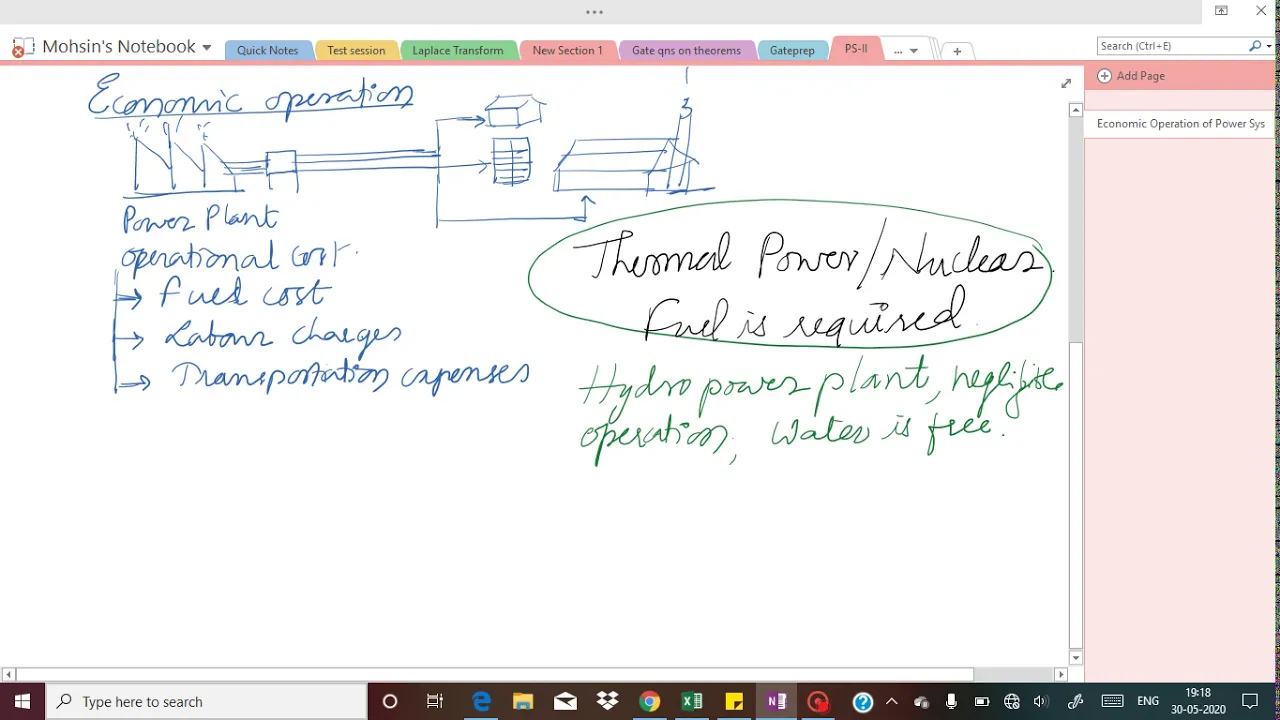 Mohsin's Notebook
Quick Notes
Test session
Laplace Transform
New Section 1
Gate qns on theorems
Gateprep
PS-II
...
+
Search (Ctrl+E)
Add Page
Economic Operation of Power Sys
Economic operation
Power Plant
operational cost.
Fuel cost
Labour charges
Transportation expenses
Thermal Power/Nuclear.
Fuel is required.
Hydro power plant, negligible
operation, Water is free.
Type here to search
ENG
19:18
30-05-2020